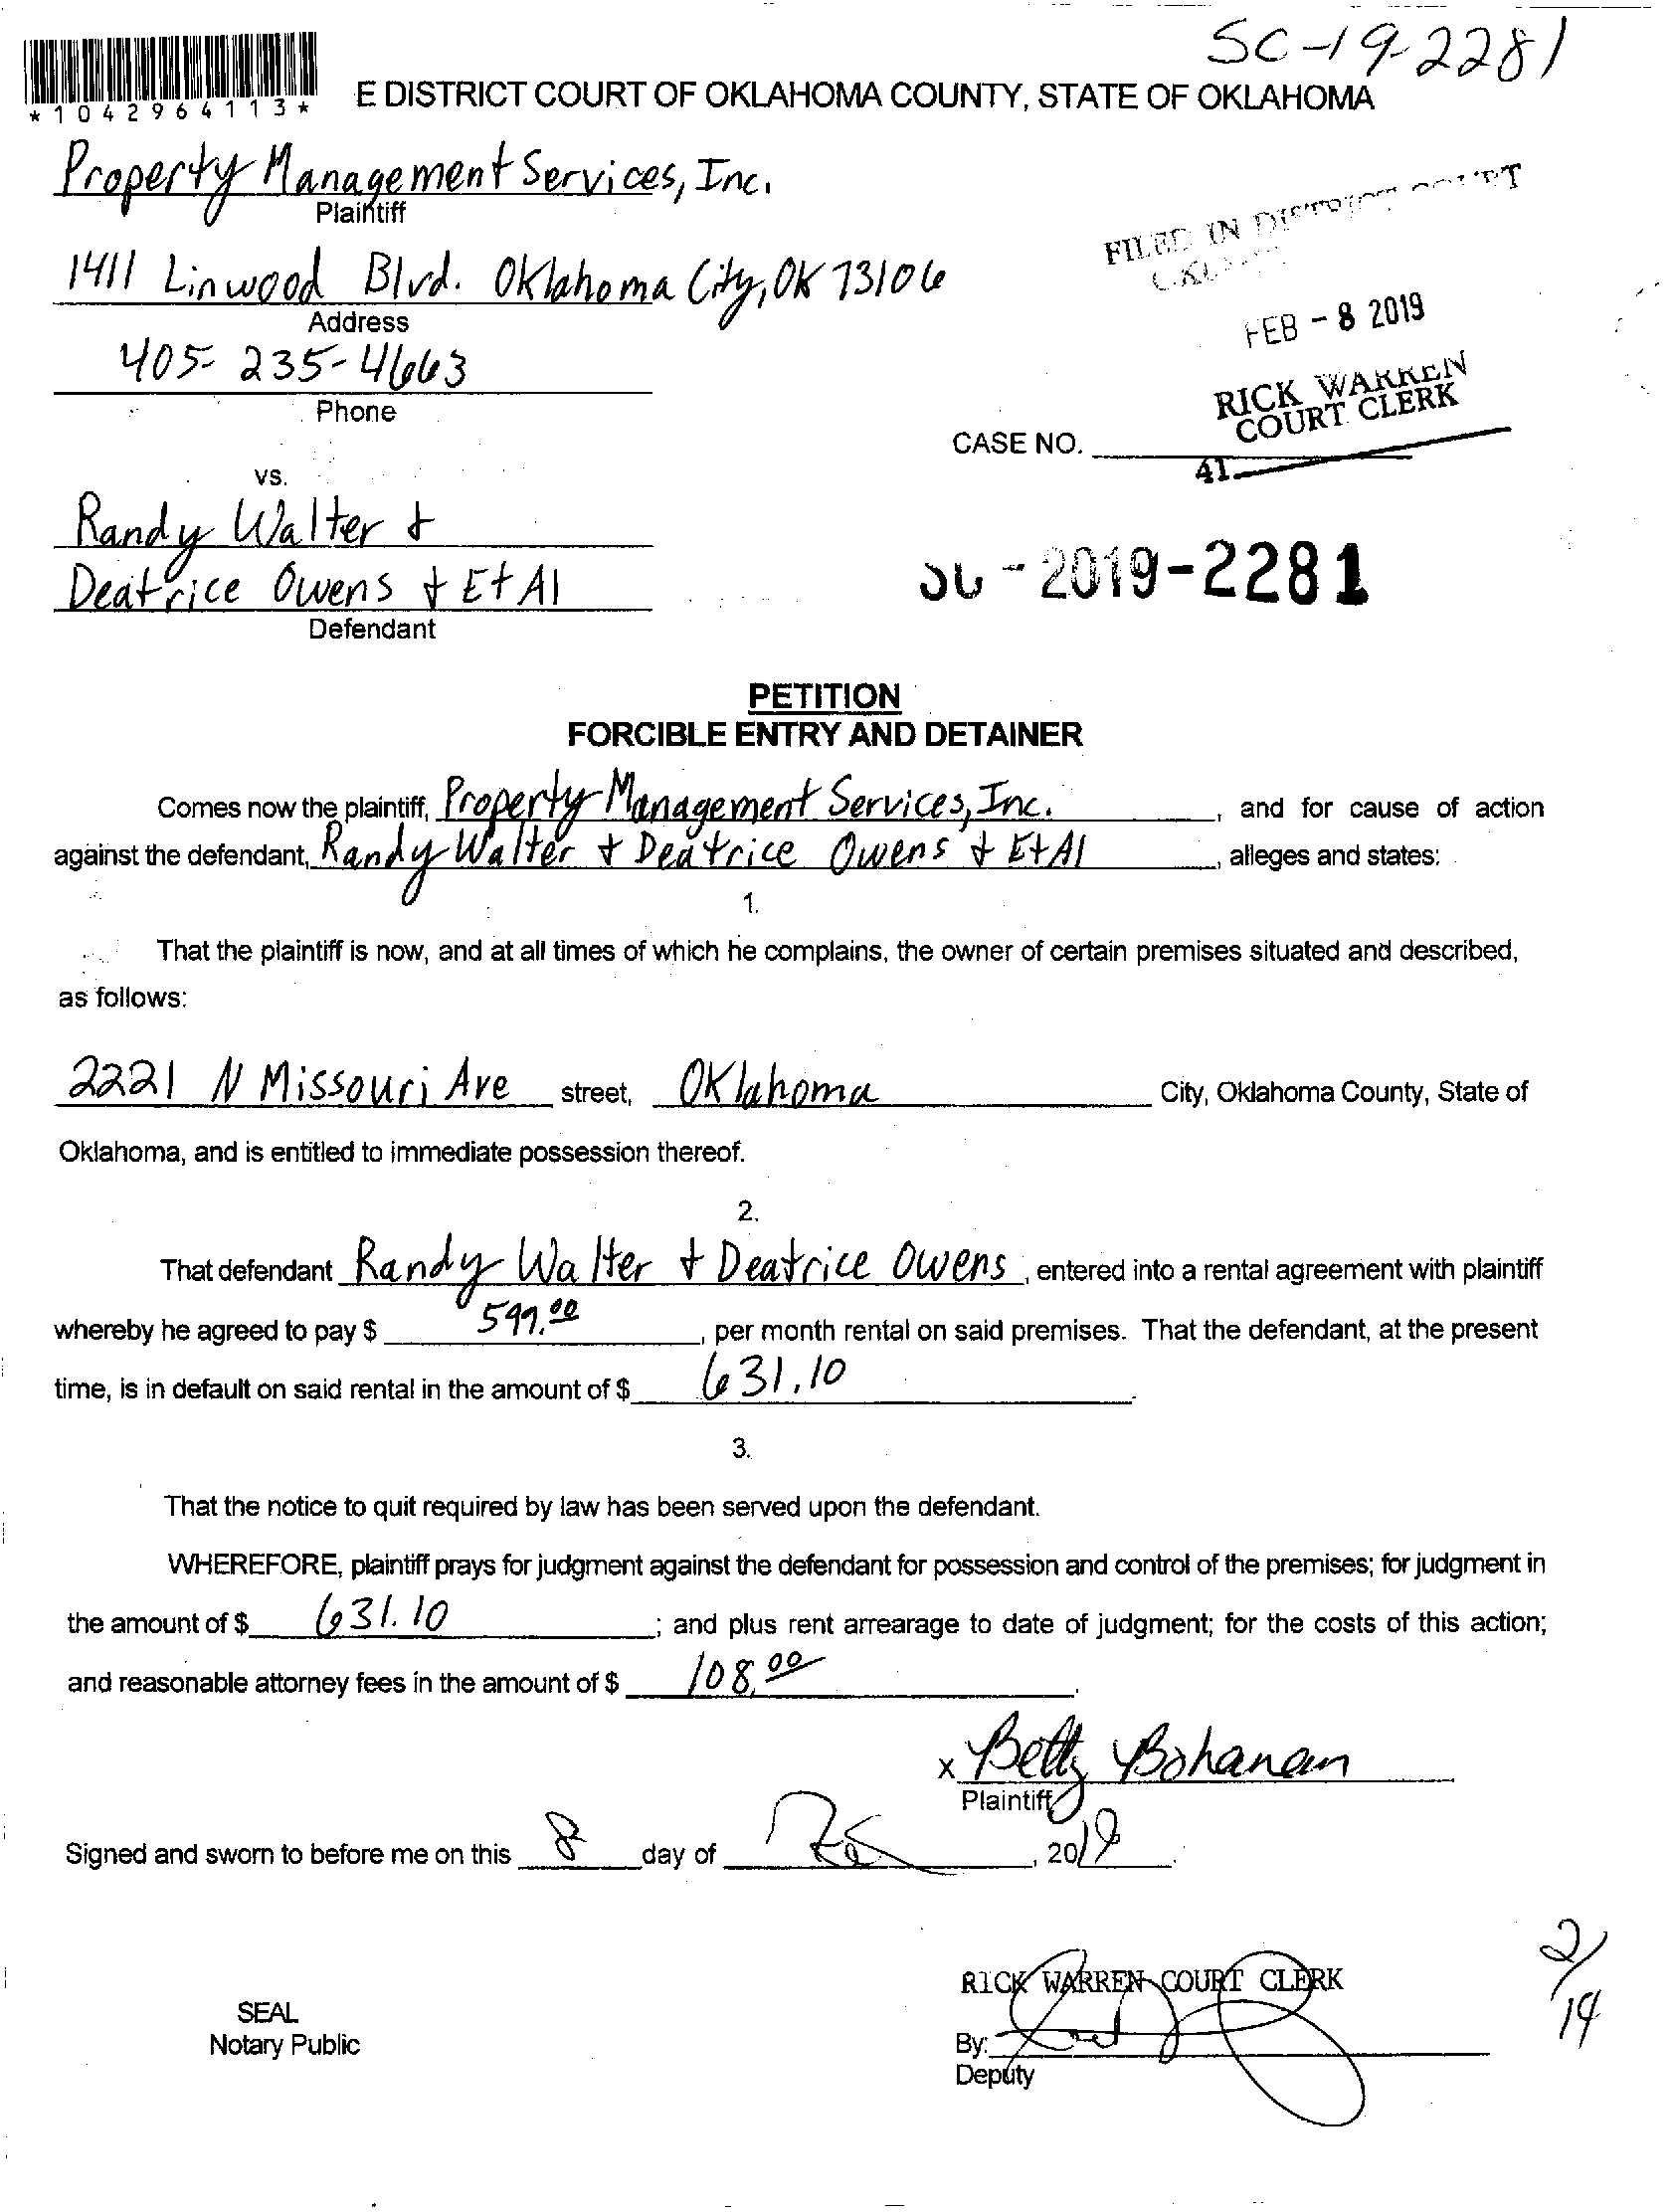 SC-19-2281
*1042964113*
E DISTRICT COURT OF OKLAHOMA COUNTY, STATE OF OKLAHOMA
Property Management Services, Inc.
Plaintiff
FILED IN DISTRICT COURT
1411 Linwood Blvd. Oklahoma City, OK 73106
Address
FEB - 8 2019
405-235-4663
Phone
RICK WARREN
COURT CLERK
CASE NO.
41
vs.
Randy Walter &
Deatrice Owens & Et Al
Defendant
SC - 2019-2281
PETITION
FORCIBLE ENTRY AND DETAINER
Comes now the plaintiff, Property Management Services, Inc. , and for cause of action
against the defendant, Randy Walter & Deatrice Owens & Et Al , alleges and states:
1.
That the plaintiff is now, and at all times of which he complains, the owner of certain premises situated and described,
as follows:
2221 N Missouri Ave street, Oklahoma City, Oklahoma County, State of
Oklahoma, and is entitled to immediate possession thereof.
2.
That defendant Randy Walter & Deatrice Owens , entered into a rental agreement with plaintiff
whereby he agreed to pay $ , per month rental on said premises. That the defendant, at the present
time, is in default on said rental in the amount of $ 631.10 .
3.
That the notice to quit required by law has been served upon the defendant.
WHEREFORE, plaintiff prays for judgment against the defendant for possession and control of the premises; for judgment in
the amount of $ 631.10 ; and plus rent arrearage to date of judgment; for the costs of this action;
and reasonable attorney fees in the amount of $ 108.00 .
x Betty Bohanan
Plaintiff
Signed and sworn to before me on this 8 day of , 2019 .
2/14
RICK WARREN COURT CLERK
SEAL
Notary Public
By:
Deputy